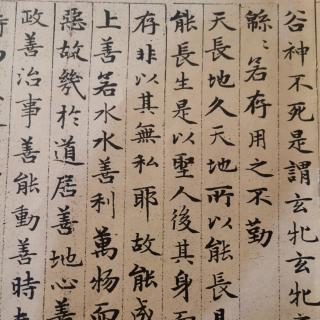 谷神不死是謂玄牝玄牝
緜〻若存用之不勤
天長地久天地所以能長且
能長生是以聖人後其身而
存非以其無私耶故能成
上善若水水善利萬物而
惡故幾於道居善地心善
政善治事善能動善時